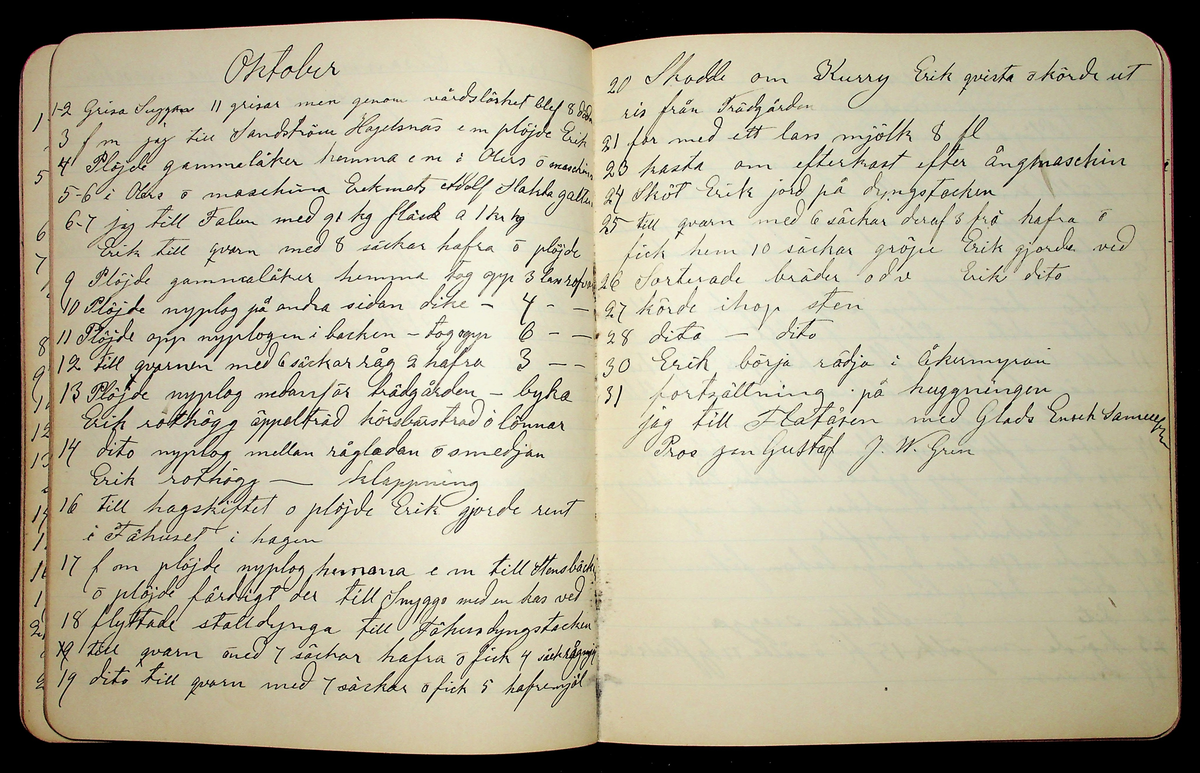 Oktober
1-2 Grisa Suggan 11 grisar men genom vårdslöshet blef 8 döda
3 f m jag till Sandström Hagelsnäs e m plöjde Erik
4 Plöjde gammelåker hemma e m i Olers o maschina
5-6 i Olers o maschina Erikmats Adolf
6-7 jag till Falun med 91 kg fläsk a 1 kr kg
Erik till qvarn med 8 säckar hafra o plöjde
9 Plöjde gammelåker hemma tog opp 3 lass rofvor
10 Plöjde nyplog på andra sidan dike - 4 - -
11 Plöjde opp nyplogen i backen - tog opp 6 - -
12 till qvarnen med 6 säckar råg 2 hafra 3 - -
13 Plöjde nyplog nedanför trädgården - byka
Erik rothögg äppelträd körsbärsträd o lönnar
14 dito nyplog mellan rågladan o smedjan
Erik rothögg - klappning
16 till hagskiftet o plöjde Erik gjorde rent
i Fähuset i hagen
17 f m plöjde nyplog hemma e m till Stensbäck
o plöjde färdigt der till Snyggs med en kas ved
18 flyttade stalldynga till Fähusdyngstacken
19 till qvarn med 7 säckar hafra o fick 4 säck rågmjöl
19 dito till qvarn med 7 säckar o fick 5 hafremjöl
20 Skodde om Kurry Erik qvista o körde ut
ris från Trädgården
21 for med ett lass mjölk 8 fl
23 kasta om efterkast efter ångmaschin
24 Sköt Erik jord på dyngstacken
25 till qvarn med 6 säckar deraf 3 frö hafra o
fick hem 10 säckar gröpe Erik gjorde ved
26 Sorterade bräder o d v Erik dito
27 körde ihop sten
28 dito - dito
30 Erik börja rödja i Åkermyran
31 fortsättning på huggningen
jag till Flatåsen med Glads Enock Samuels
Pros Jan Gustaf J. W. Gren